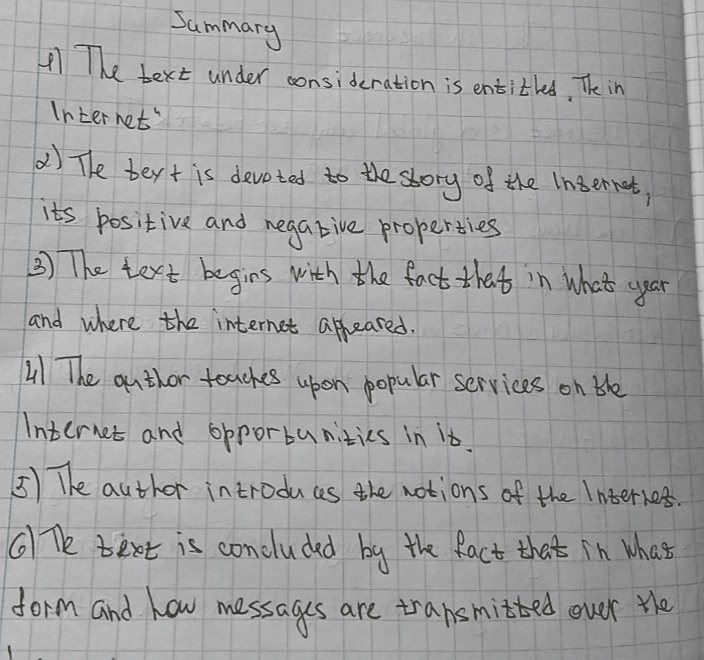 Summary
1) The text under consideration is entitled „The in
Internet"
2) The text is devoted to the story of the Internet,
its positive and negative properties
3) The text begins with the fact that in what year
and where the internet appeared.
4) The author touches upon popular services on the
Internet and opportunities in it.
5) The author introduces the notions of the Internet.
6) The text is concluded by the fact that in what
form and how messages are transmitted over the